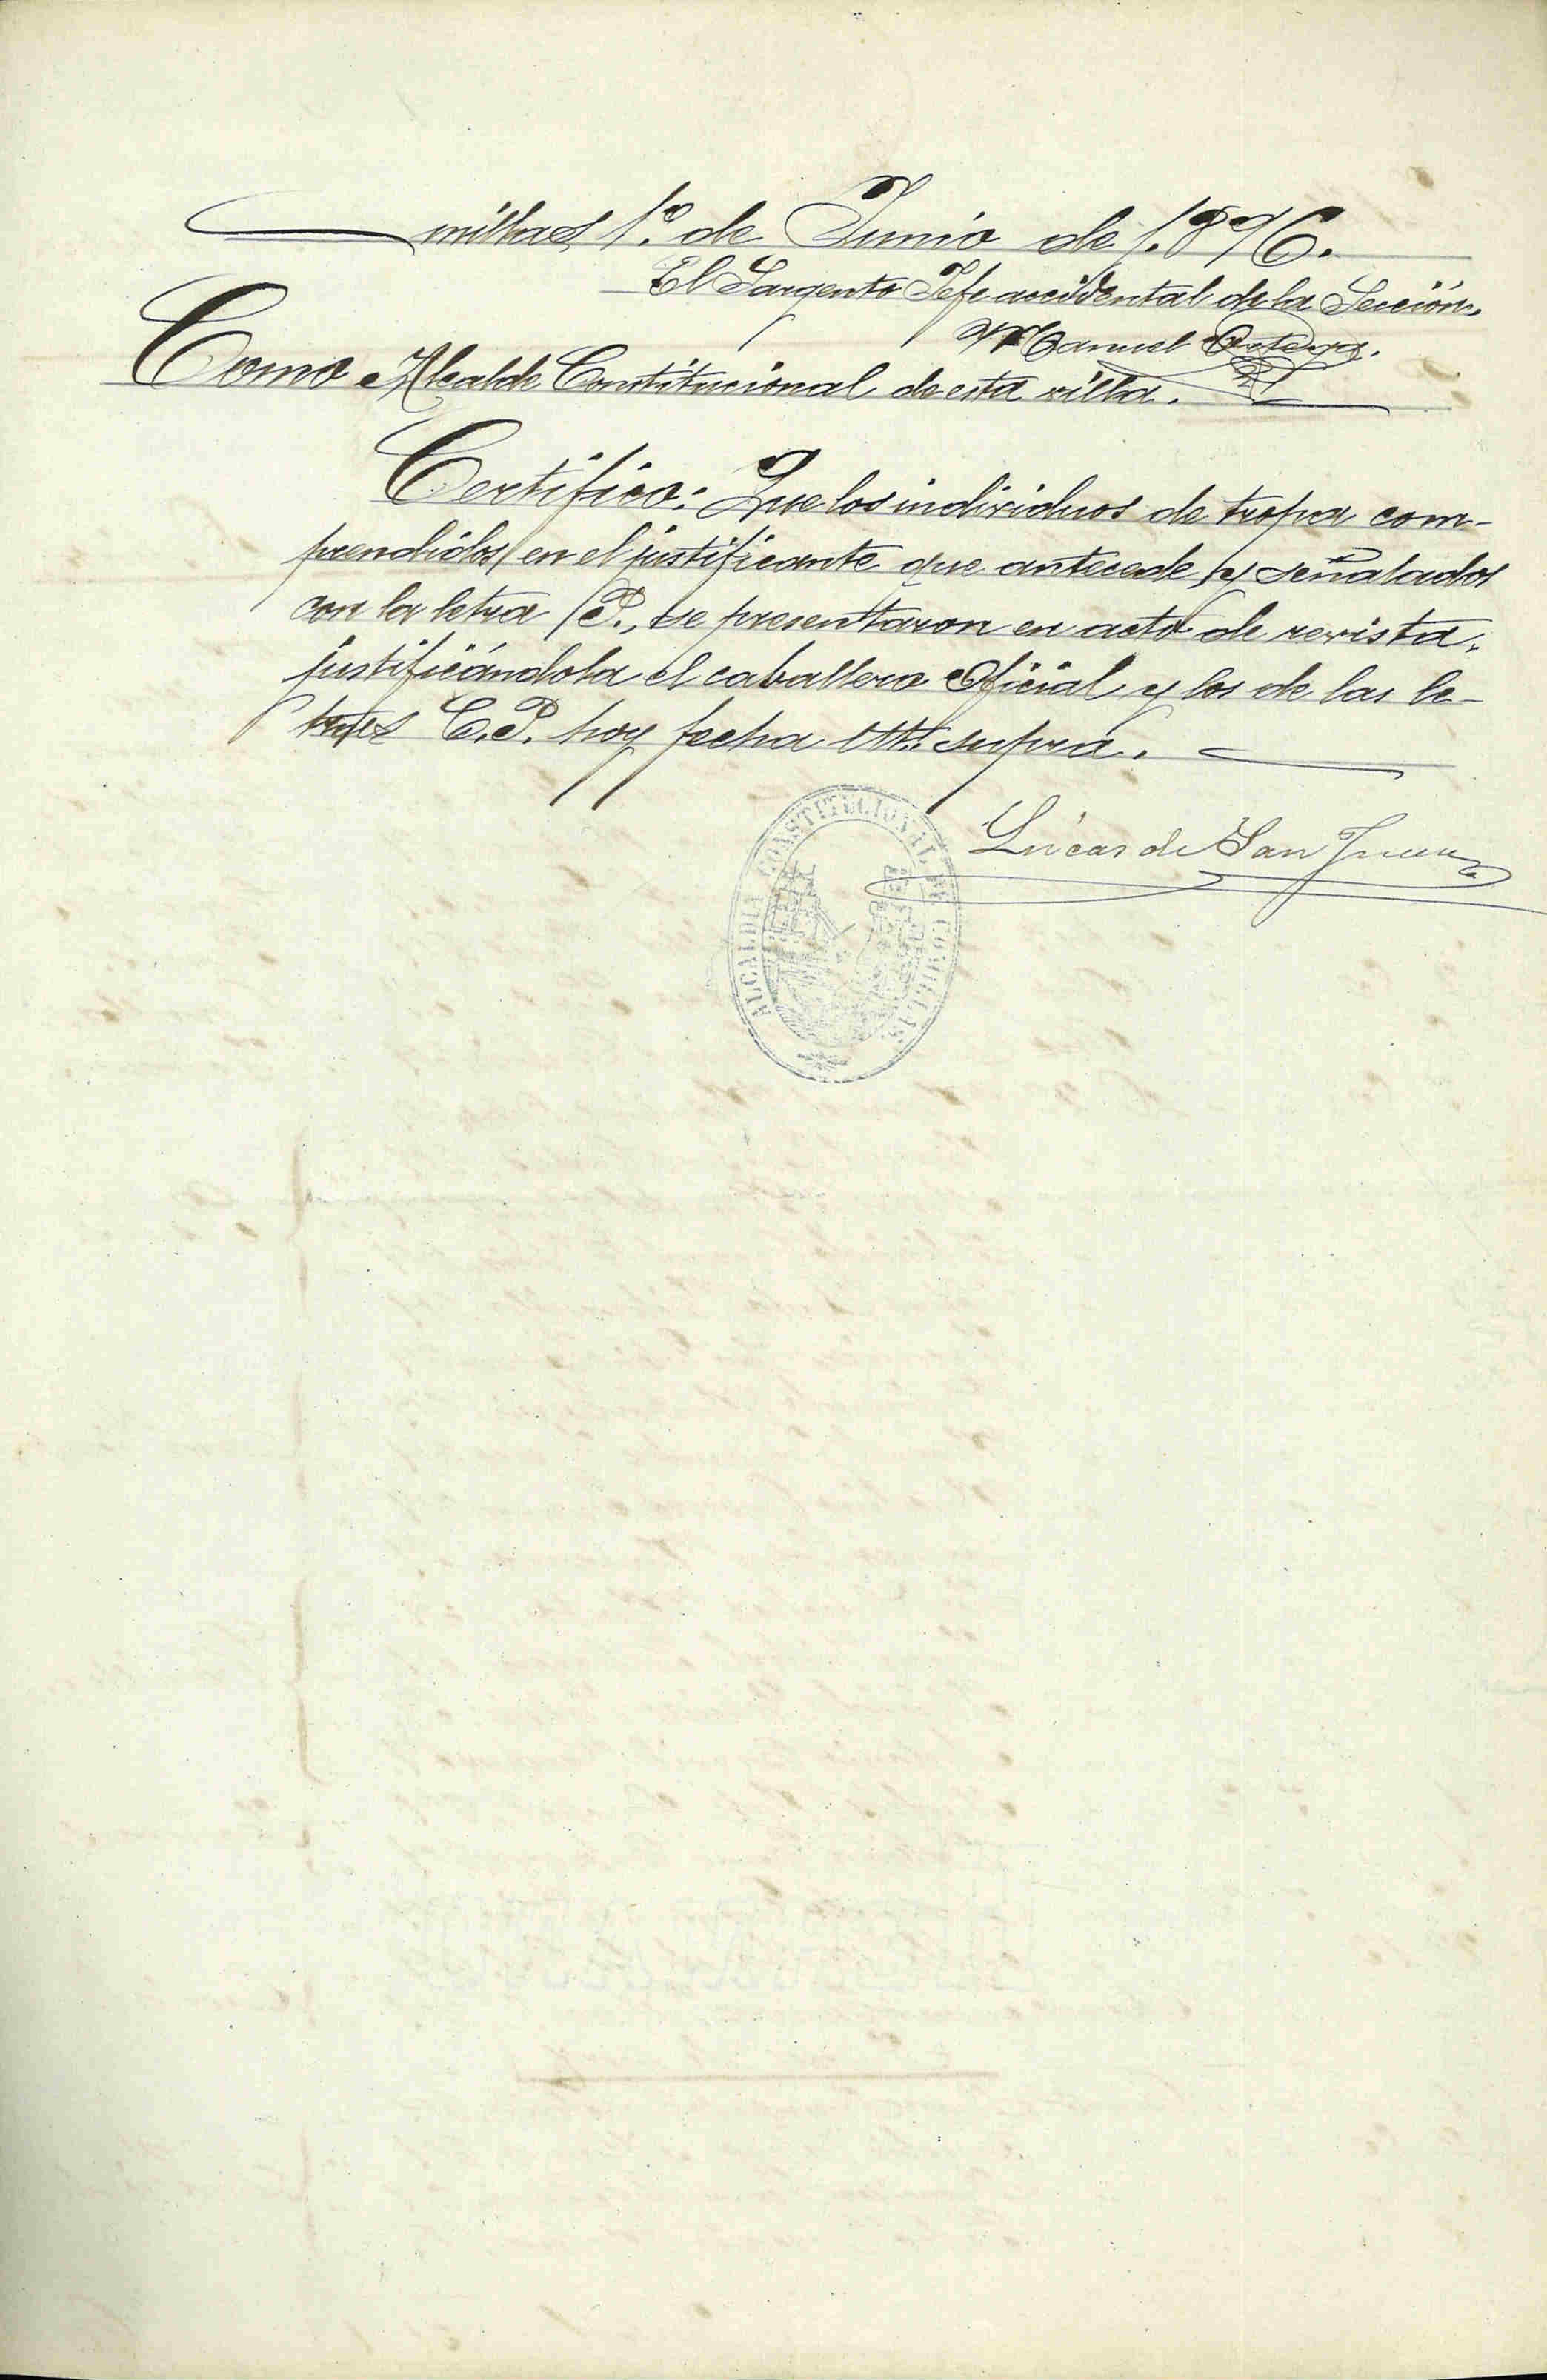 millas 1.º de Junio de 1.896.
El Sargento Jefe accidental de la Sección,
Manuel Ortega.
Como Alcalde Constitucional de esta villa.
Certifico: Que los individuos de tropa com-
prendidos en el justificante que antecede y señalados
con la letra P., se presentaron en acto de revista,
justificándola el caballero Oficial y los de las le-
tras C.P. hoy fecha ut supra.
Lúcas de San Juan
ALCALDIA CONSTITUCIONAL DE COMILLAS